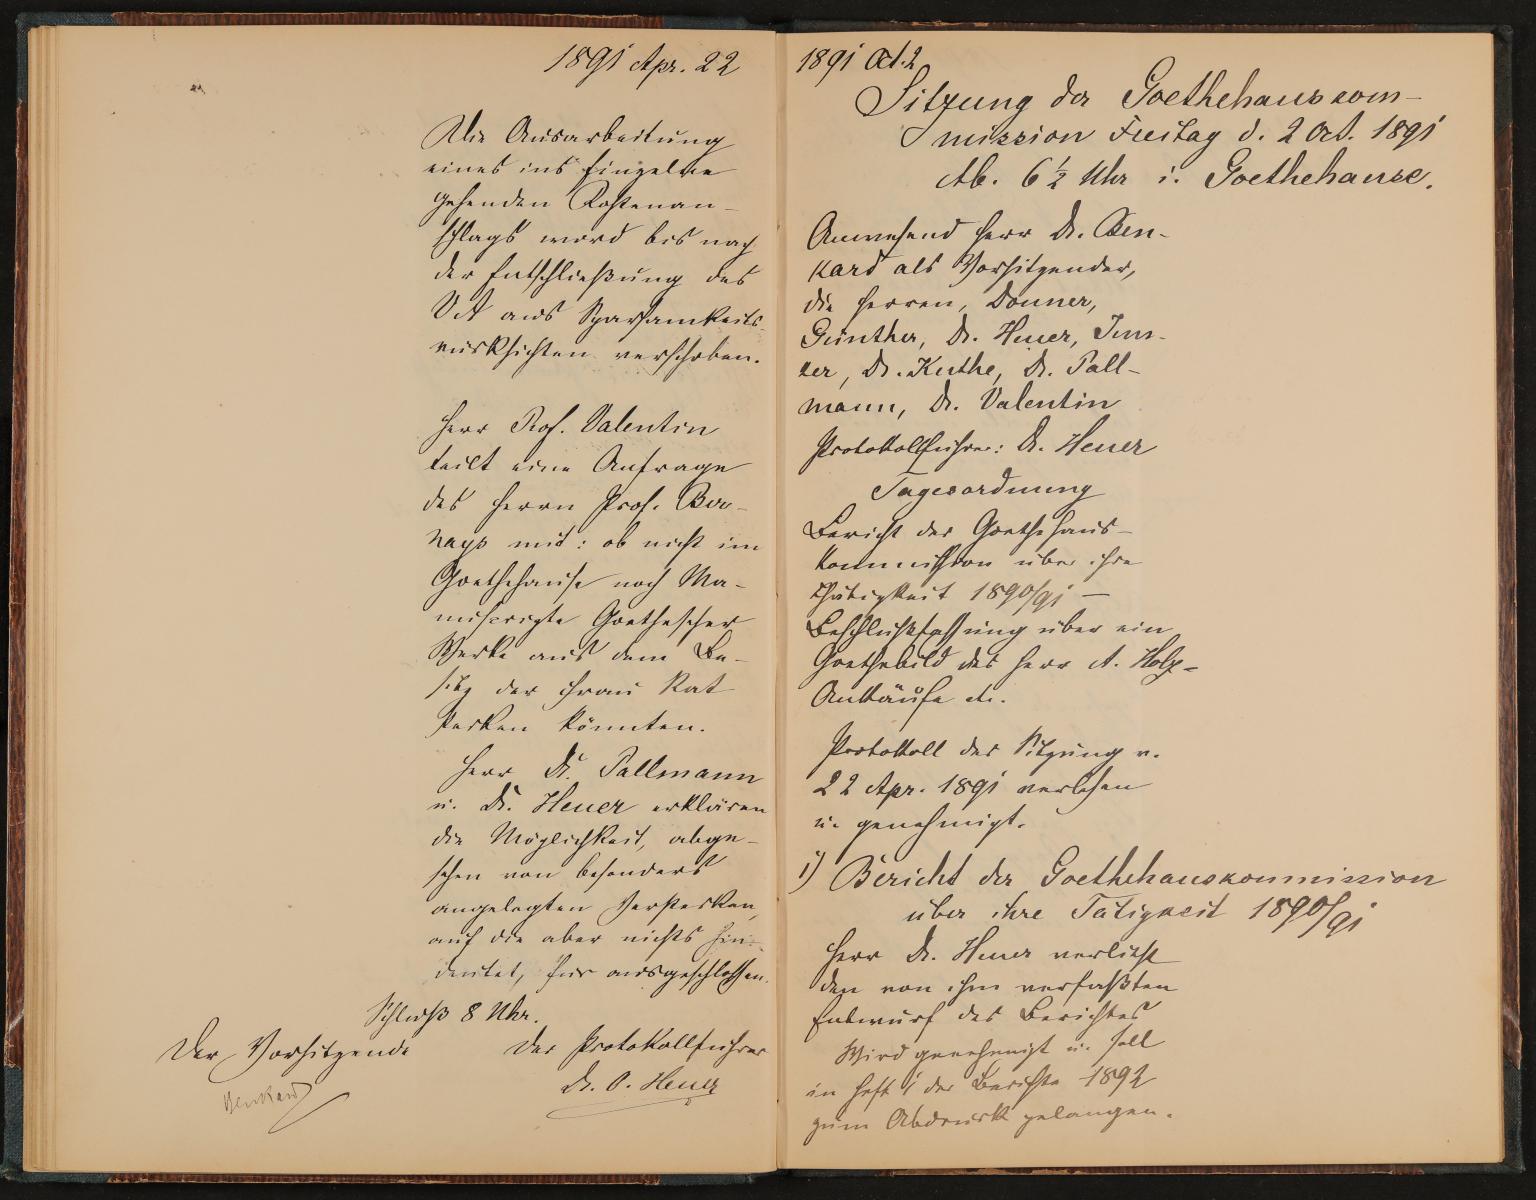 1891 Apr. 22
Die Ausarbeitung
eines ins Einzelne
gehenden Kostenan-
schlags wird bis nach
der Entschließung des
VA aus Sparsamkeits-
rücksichten verschoben.
Herr Prof. Valentin
teilt eine Anfrage
des Herrn Prof. Ber-
nays mit: ob nicht im
Goethehause noch Ma-
nuscripte Goethescher
Werke aus dem Be-
sitz der Frau Rat
stecken könnten.
Herr Dr. Pallmann
u. Dr. Heuer erklären
die Möglichkeit, abge-
sehen von besonders
angelegten Verstecken,
auf die aber nichts hin-
deutet, für ausgeschlossen.
Schluß 8 Uhr.
Der Vorsitzende
Der Protokollführer
Benkard
Dr. O. Heuer
1891 Oct. 2
Sitzung der Goethehauskom-
mission Freitag d. 2 Oct. 1891
Ab. 6 1/2 Uhr i. Goethehause.
Anwesend Herr Dr. Ben-
kard als Vorsitzender,
die Herren, Donner,
Günther, Dr. Heuer, Jun-
ker, Dr. Kuthe, Dr. Pall-
mann, Dr. Valentin
Protokollführer: Dr. Heuer
Tagesordnung
Bericht der Goethehaus-
kommission über ihre
Thätigkeit 1890/91 —
Beschlußfassung über ein
Goethebild des Herr A. Holz-
Ankäufe etc.
Protokoll der Sitzung v.
22 Apr. 1891 verlesen
u. genehmigt.
1) Bericht der Goethehauskommission
über ihre Tätigkeit 1890/91
Herr Dr. Heuer verliest
den von ihm verfaßten
Entwurf des Berichtes
Wird genehmigt u. soll
in Heft 1 der Berichte 1892
zum Abdruck gelangen.